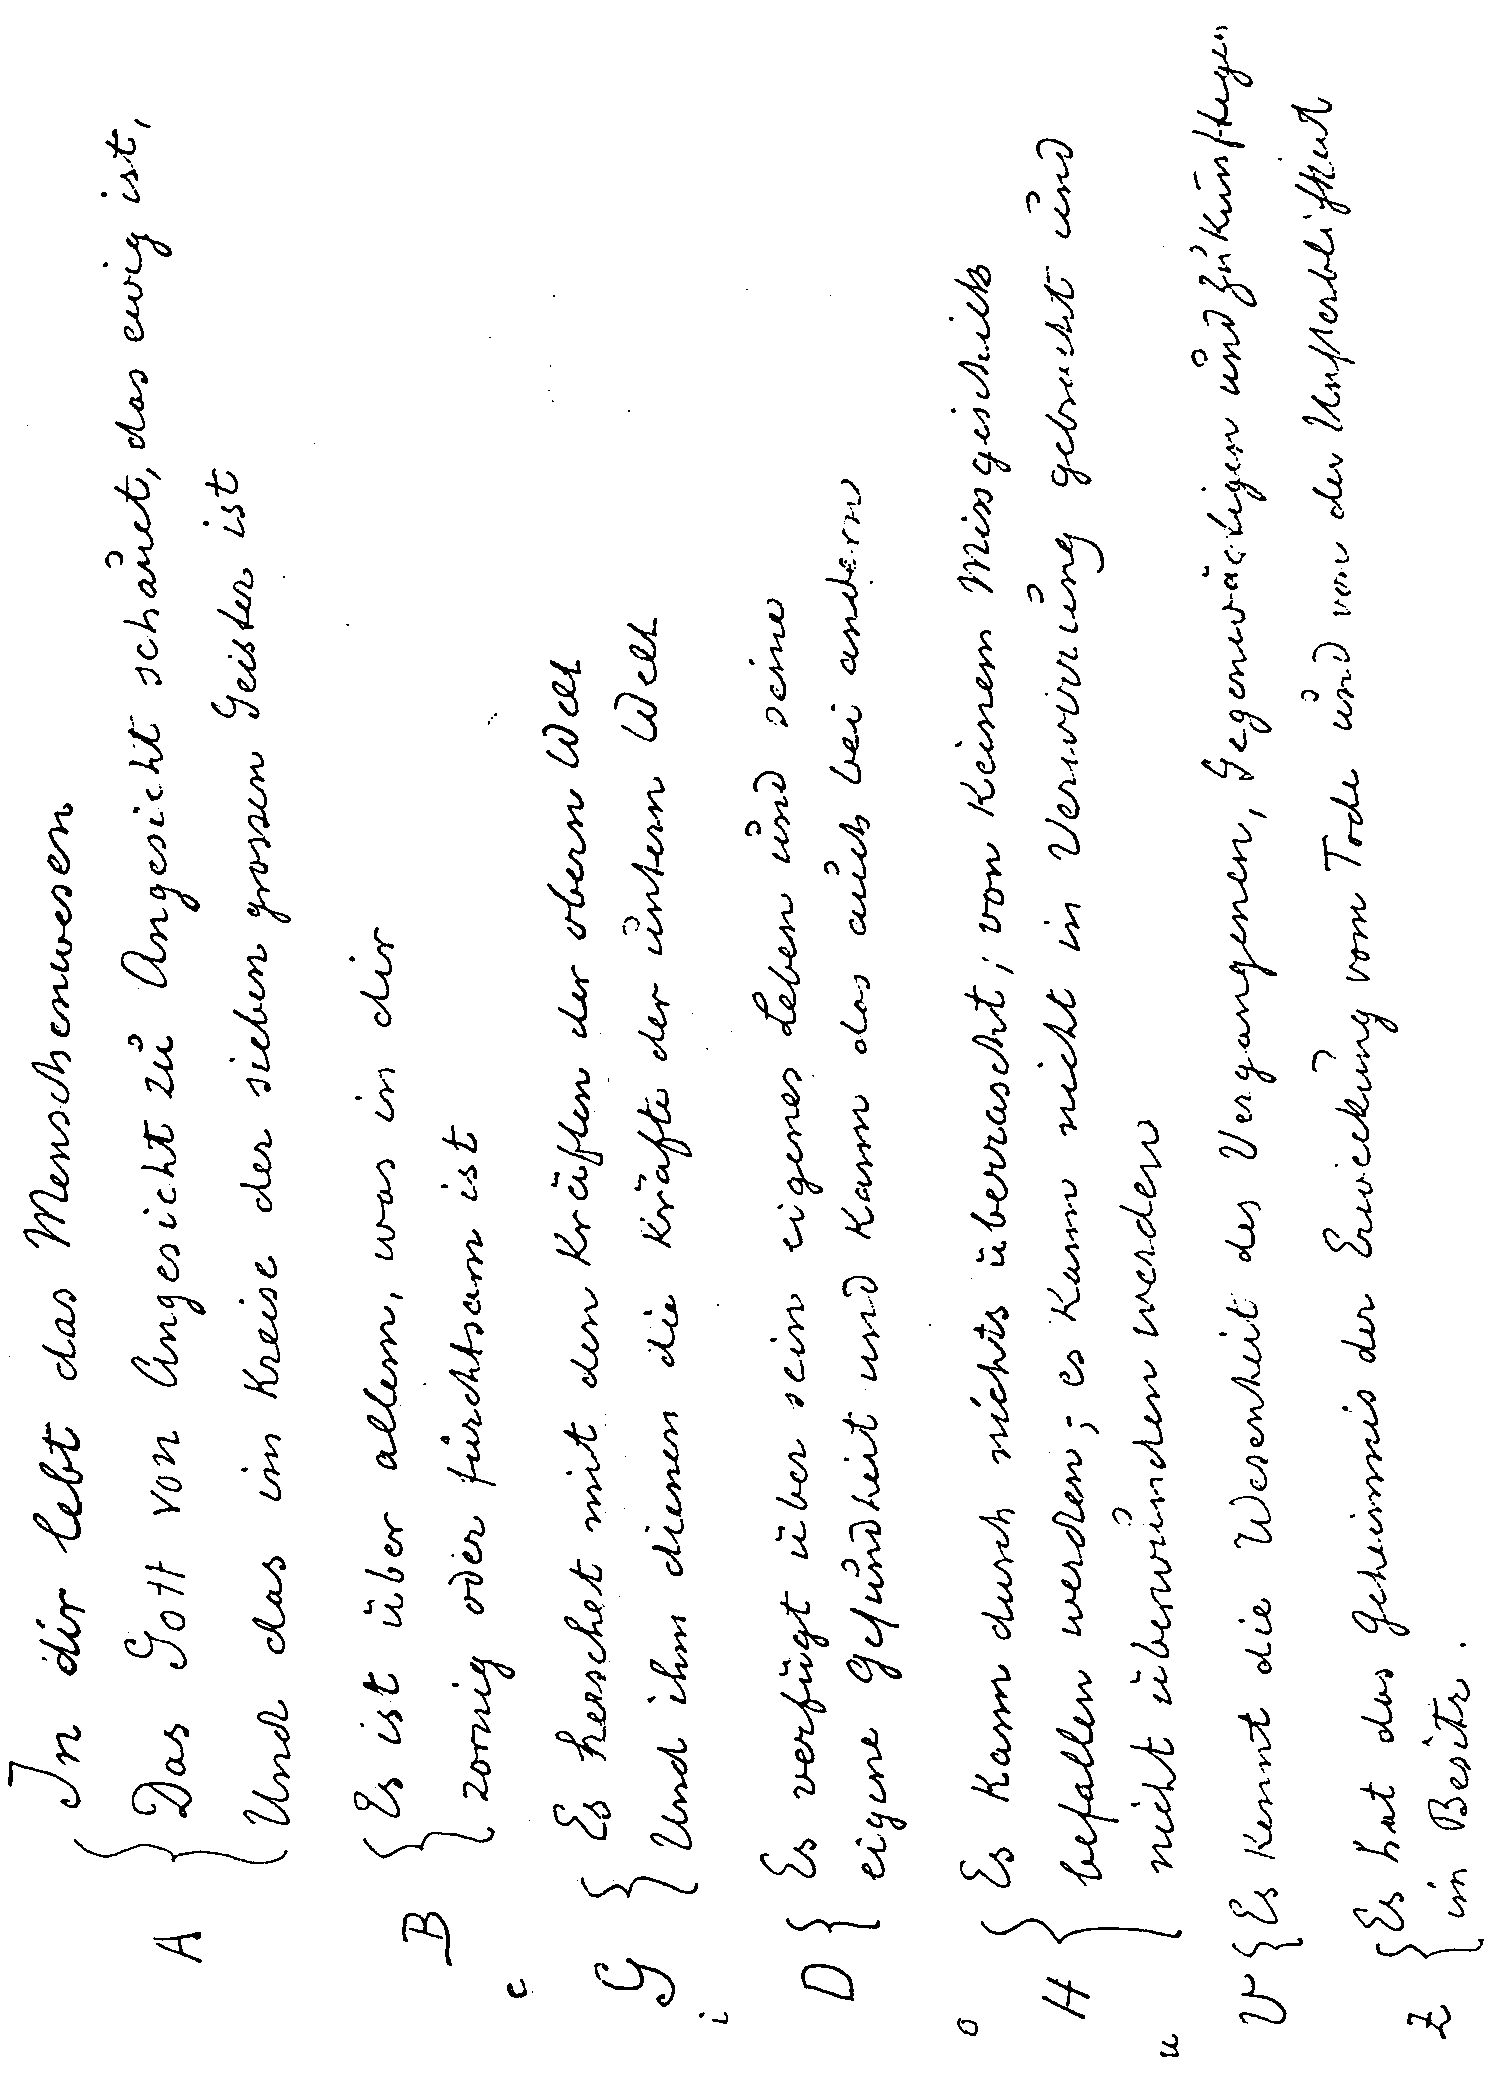 In dir lebt das Menschenwesen
A { Das Gott von Angesicht zu Angesicht schauet, das ewig ist,
Und das im Kreise der sieben grossen Geister ist
B { Es ist über allem, was in dir
zornig oder furchtsam ist
e
G { Es herschet mit den Kräften der obern Welt
Und ihm dienen die Kräfte der untern Welt
i
D { Es verfügt über sein eigenes Leben und seine
eigene Gesundheit und kann das auch bei andern
o
Es kann durch nichts überrascht; von keinem Missgeschick
H { befallen werden; es kann nicht in Verwirrung gebracht und
nicht überwunden werden
u
V { Es kennt die Wesenheit des Vergangenen, Gegenwärtigen und Zukünftigen
Z { Es hat das Geheimnis der Erwickung vom Tode und von der Unsterblichkeit
im Besitz.